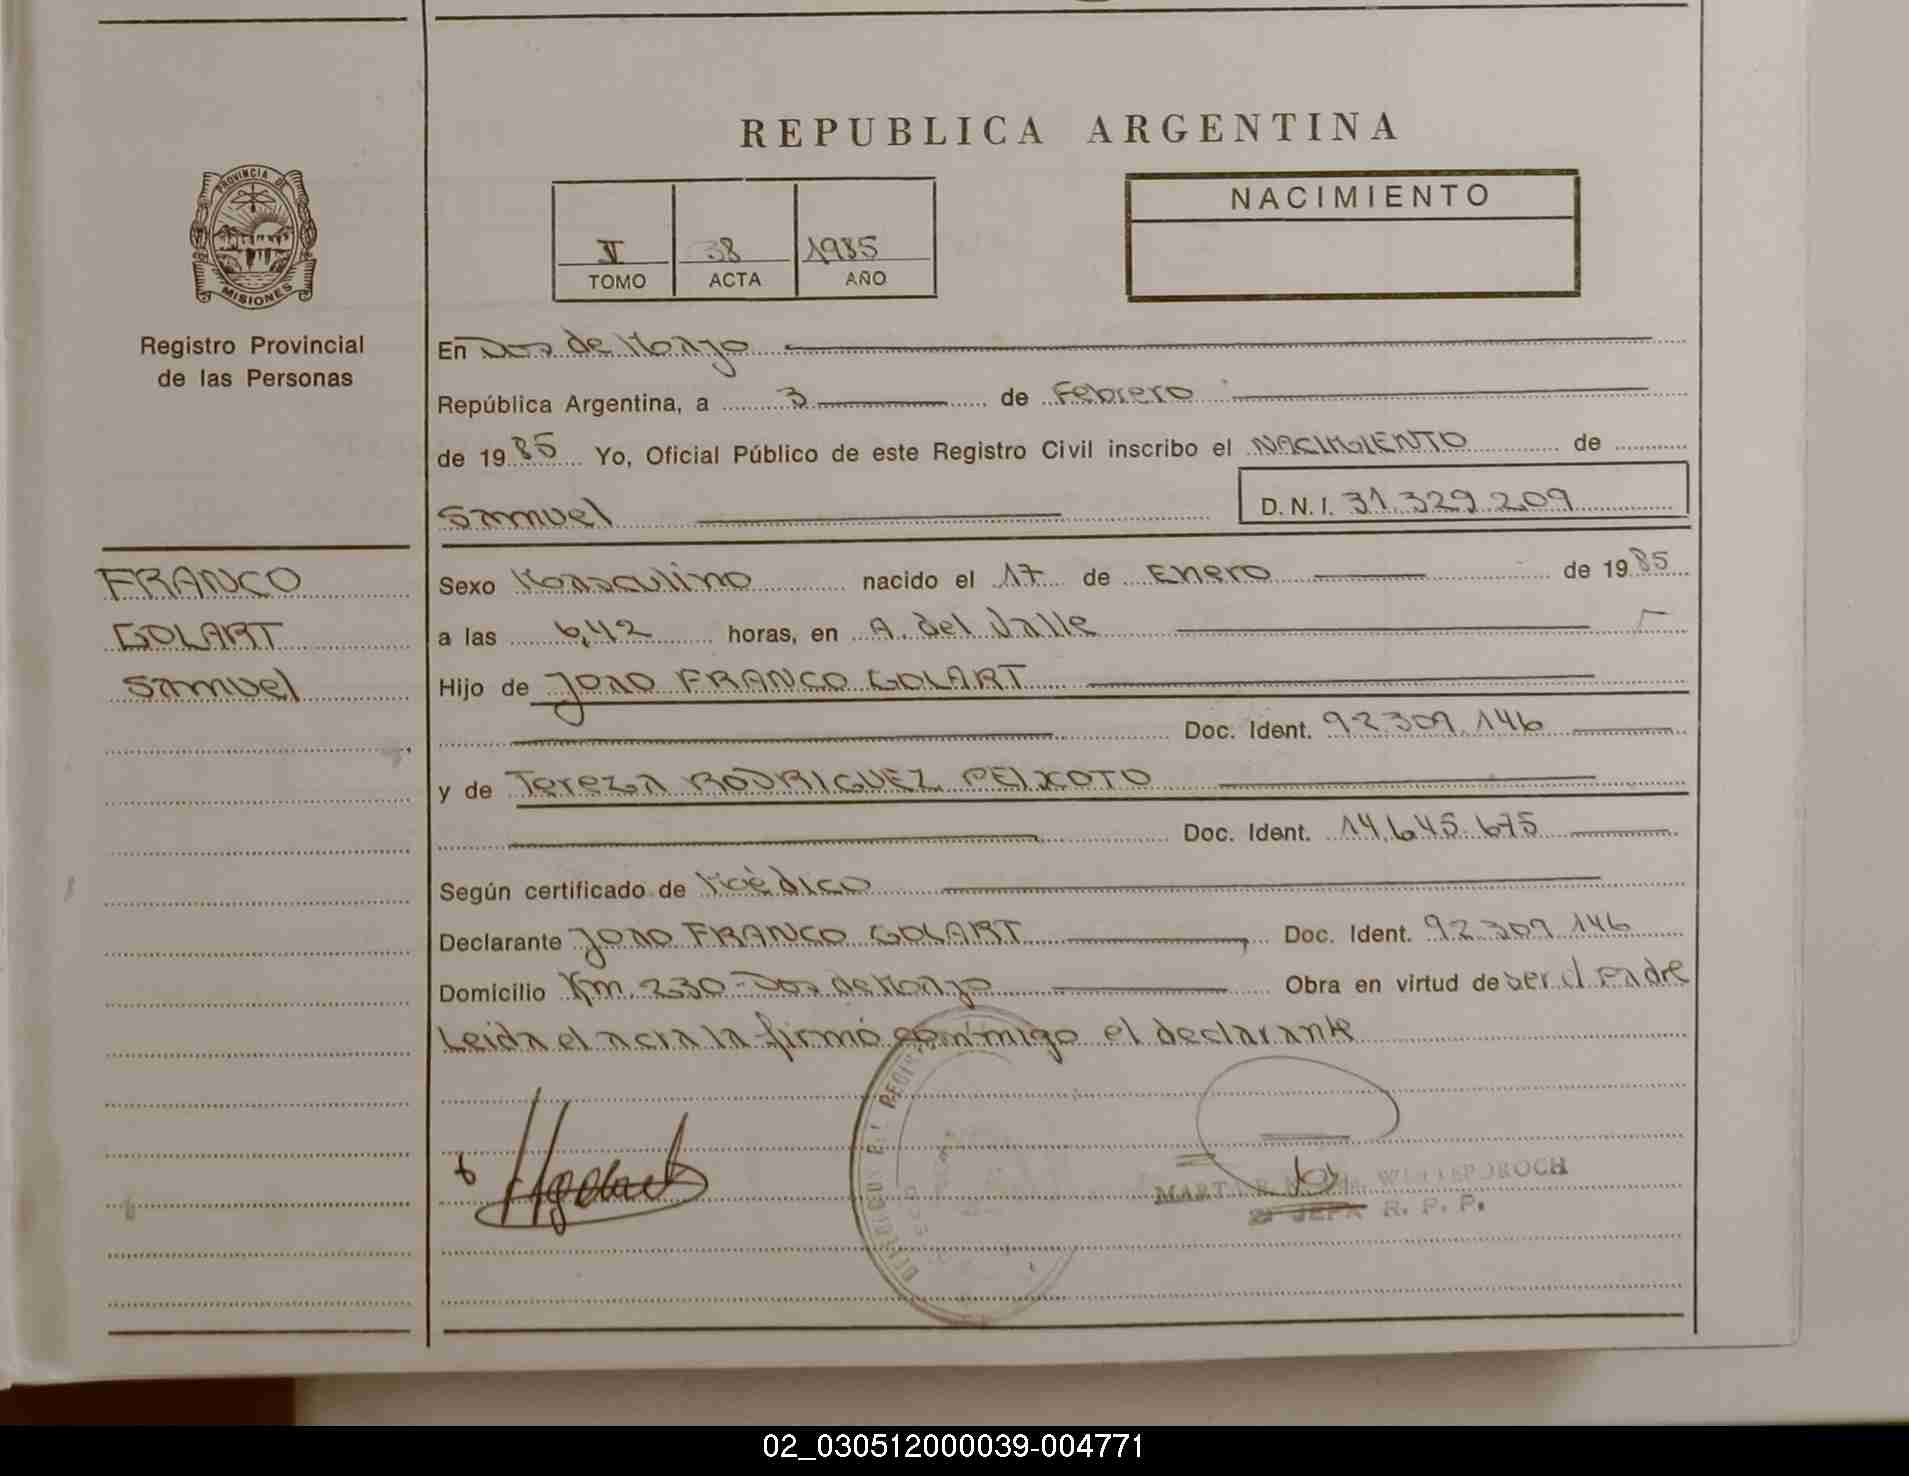 REPUBLICA ARGENTINA
PROVINCIA DE
MISIONES
Registro Provincial
de las Personas
NACIMIENTO
V 38 1985
TOMO ACTA AÑO
En Dos de Mayo
República Argentina, a 3 de Febrero
de 1985 Yo, Oficial Público de este Registro Civil inscribo el NACIMIENTO de
Samuel D.N.I. 31.329.209
FRANCO
GOLART
Samuel
Sexo Masculino nacido el 17 de Enero de 1985
a las 6,42 horas, en A. del Valle
Hijo de Joao FRANCO GOLART
Doc. Ident. 92.309.146
y de Tereza RODRIGUEZ PEIXOTO
Doc. Ident. 14.645.675
Según certificado de Médico
Declarante Joao FRANCO GOLART Doc. Ident. 92.309.146
Domicilio Km. 230 - Dos de Mayo Obra en virtud de ser el Padre
Leida el acta la firmó conmigo el declarante
JEFA R. P. P.
02_030512000039-004771